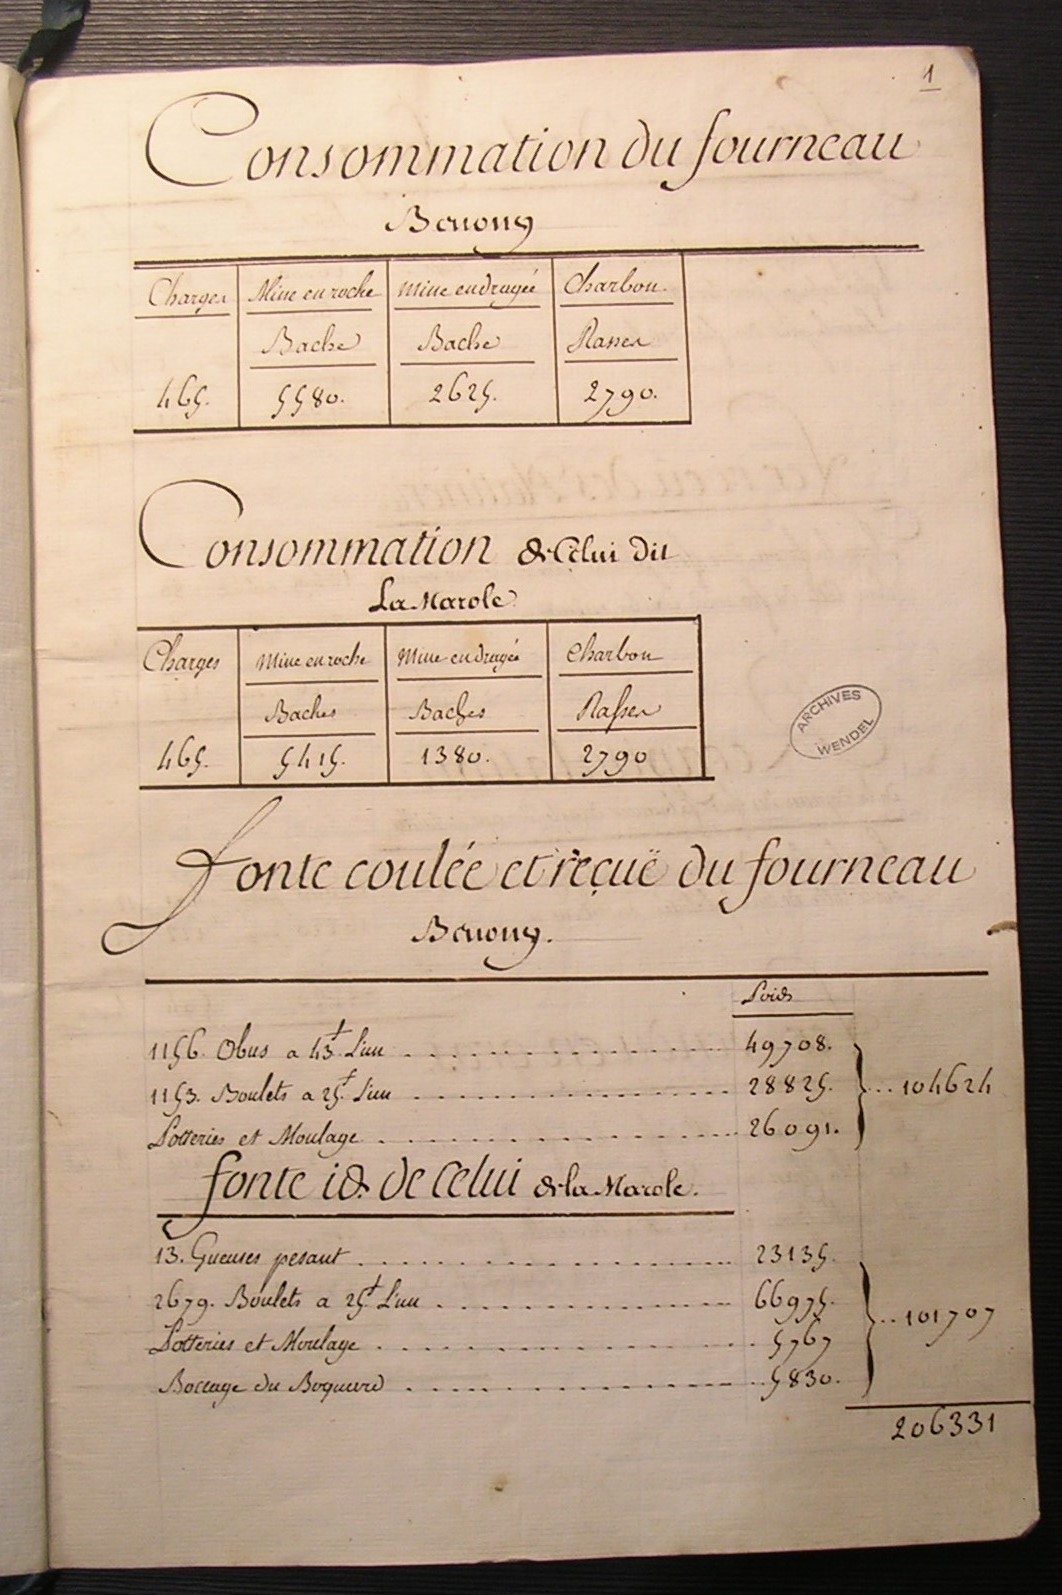 1
Consommation du fourneau
Charges Mine en roche Mine en dragée Charbon.
Bache Bache Rasses
465. 5580. 2625. 2790.
Consommation de Celui dit
La Marole
Charges Mine en roche Mine en dragée Charbon
Baches Baches Rasses
465. 5415. 1380. 2790
ARCHIVES
WENDEL
fonte coulée et reçuë du fourneau
Poids
1156. Obus a 43 L'un 49708.
1153. Boulets a 25 L'un 28825. 104624
Potteries et Moulage 26091.
fonte id. de Celui de la Marole.
13. Gueuses pesant 23135.
2679. Boulets a 25 L'un 66975. 101707
Potteries et Moulage 5767
Boccage du Boquard 5830.
206331